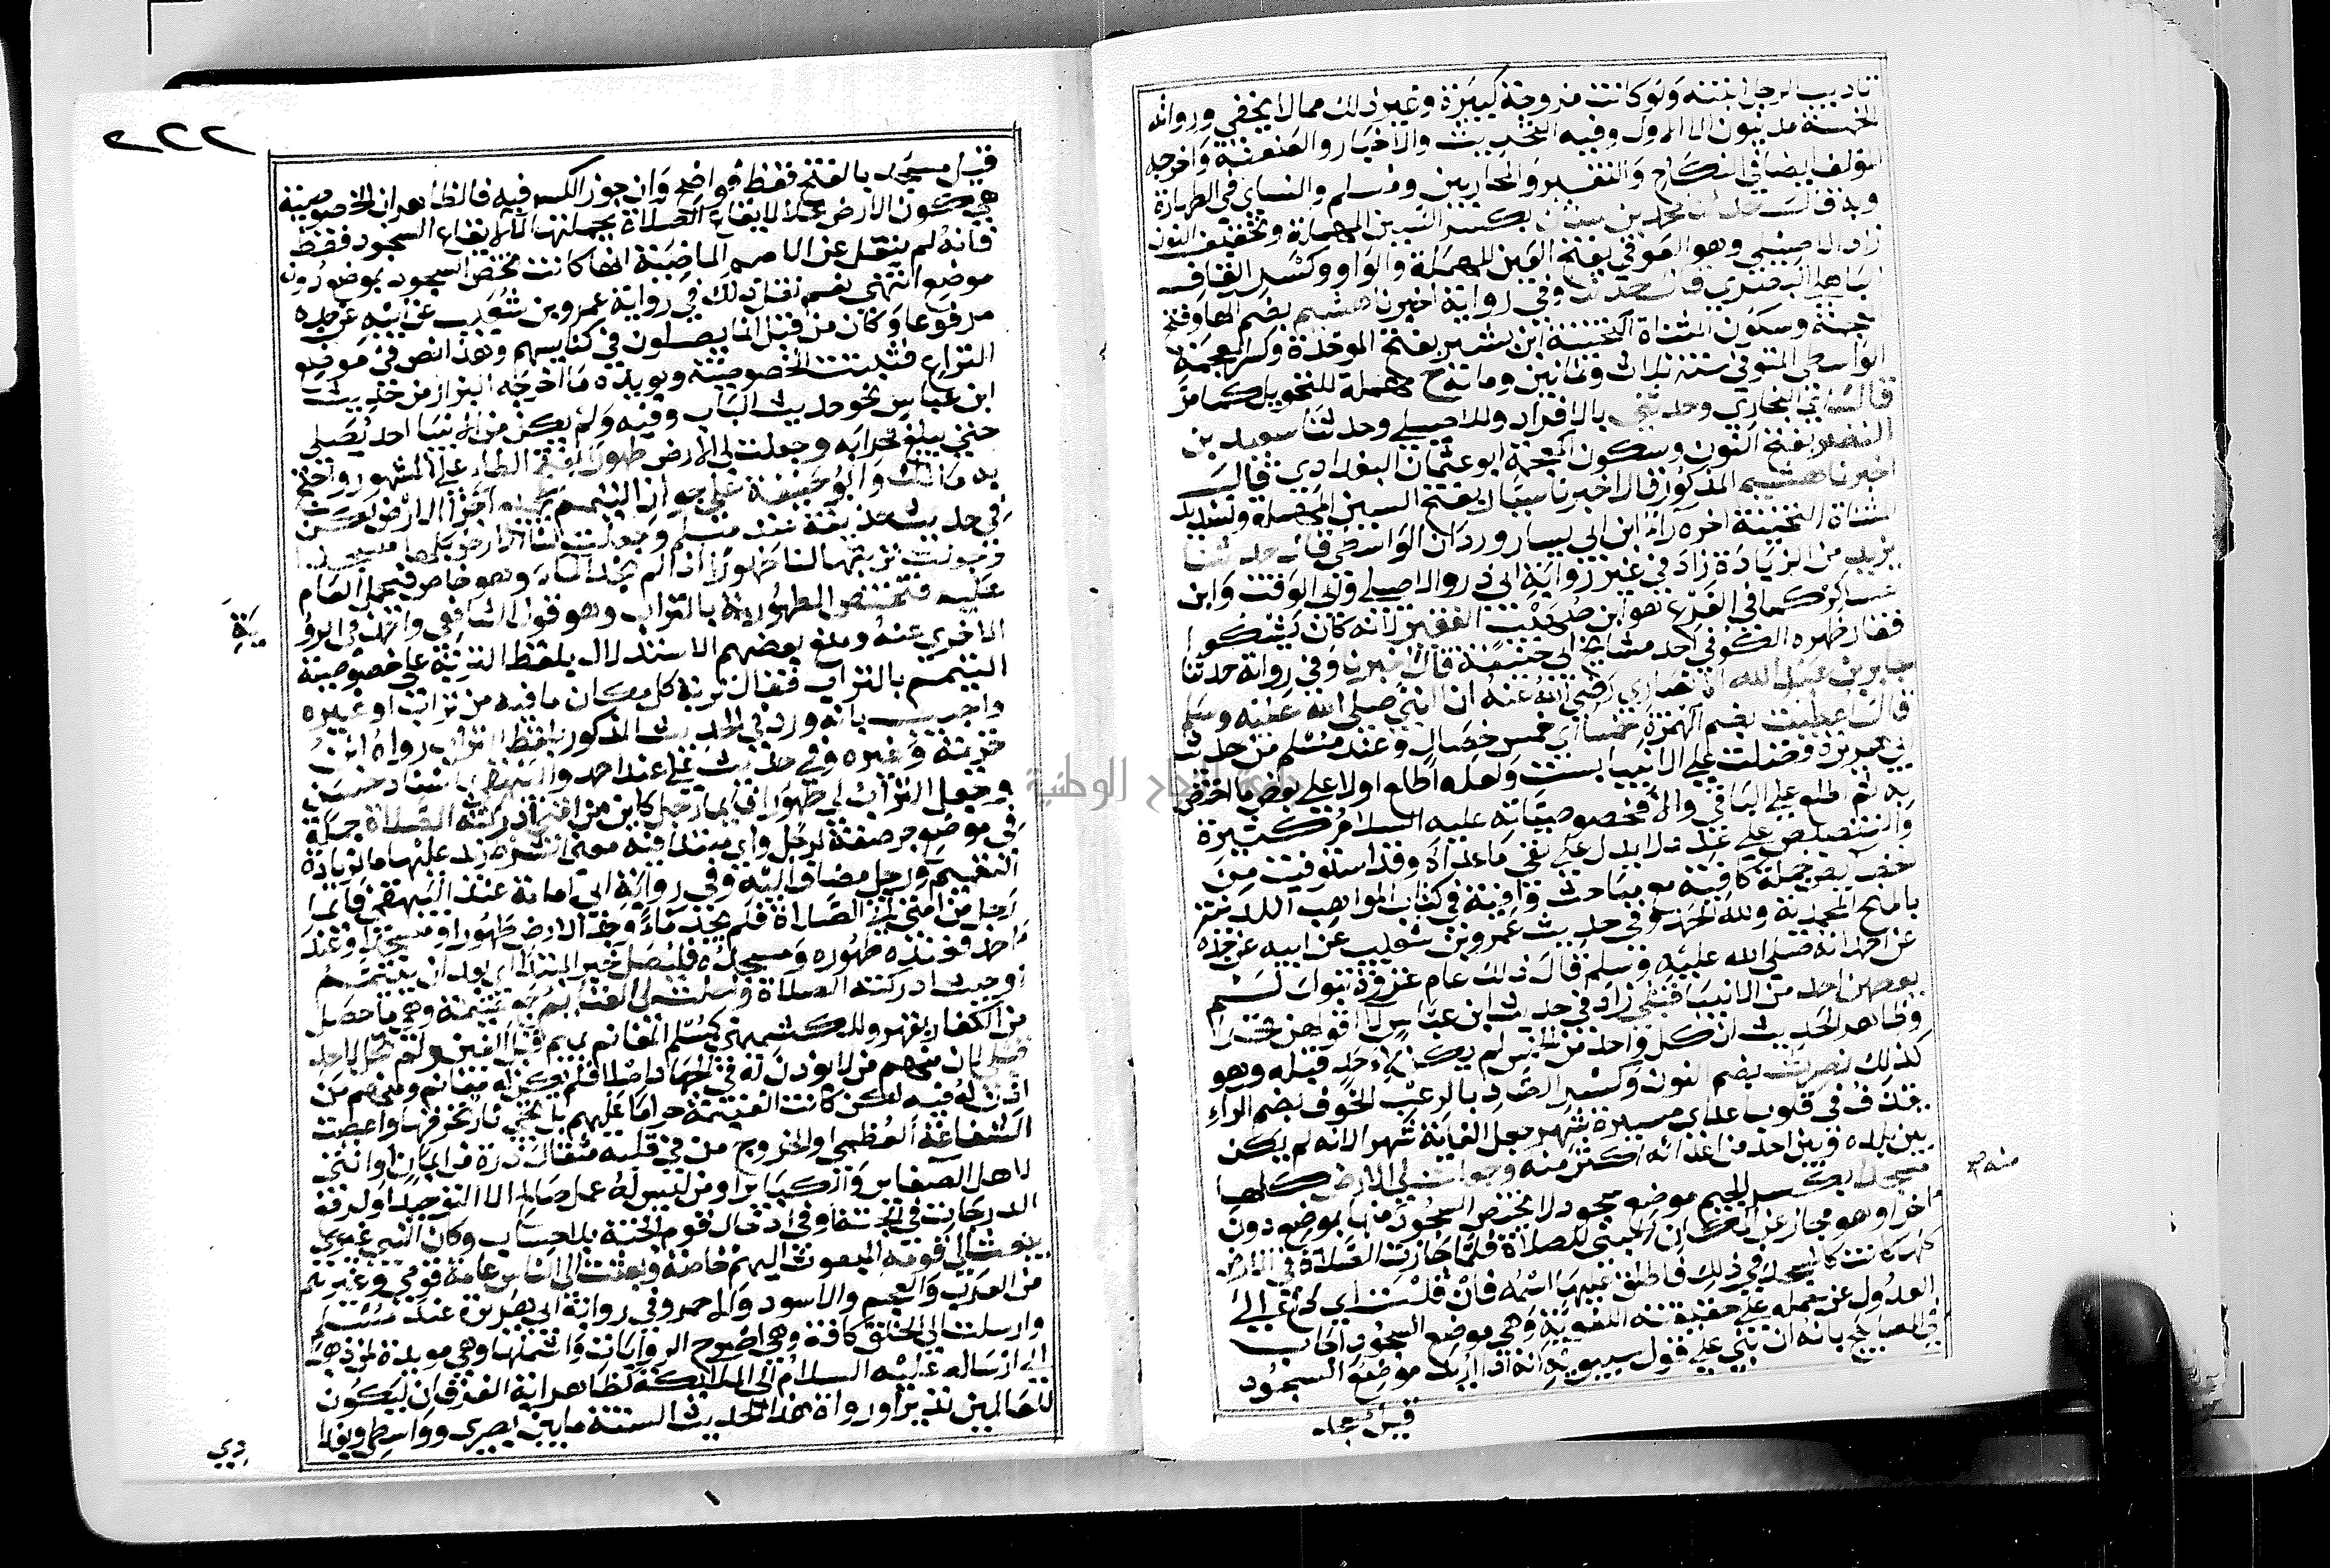 تاديب الرجل ابنته ولو كانت مزوجة كبيرة وغير ذلك مما لا يخفى ورواته
الخمسة مدنيون الا الاول وفيه التحديث والاخبار والعنعنة واخرجه
المؤلف ايضا في النكاح والتفسير والمحاربين ومسلم والنساي في الطهارة
وبه قال حدثنا محمد بن سنان بكسر السين المهملة وتخفيف النون
زاد الاصيلي وهو العوقي بفتح العين المهملة والواو وكسر القاف
الباهلي البصري قال حدثنا وفي رواية اخبرنا هشيم بضم الها وفتح
وسكون المثناة التحتية ابن بشير بفتح الموحدة وكسر المعجمة
الواسطي المتوفى سنة ثلاث وثمانين ومائة ح مهملة للتحويل كما مر
قال اي البخاري وحدثني بالافراد وللاصيلي وحدثنا سعيد بن
النضر بفتح النون وسكون المعجمة ابو عثمان البغدادي قال
اخبرنا هشيم المذكور قال اخبرنا سيار بفتح السين المهملة وتشديد
المثناة التحتية اخره راء ابن ابي سيار وردان الواسطي قال حدثنا
يزيد من الزيادة زاد في غير رواية ابي ذر والاصيلي وابي الوقت وابن
عساكر كما في الفرع هو ابن صهيب الفقير لانه كان يشكوا
فقار ظهره الكوفي احد مشايخ ابي حنيفة قال اخبرنا وفي رواية حدثنا
جابر بن عبد الله الانصاري رضي الله عنه ان النبي صلى الله عليه وسلم
قال اعطيت بضم الهمزة خمسا اي خمس خصال وعند مسلم من حديث
ابي هريرة فضلت على الانبيا بست ولعله اطلع اولا على بعض ما اختص
به ثم اطلع على الباقي والا فخصوصياته عليه السلام كثيرة
والتنصيص على عدد لا يدل على نفي ما عداه وقد استوفيت من
جملة كافية مع مباحث وافية في كتاب المواهب اللدنية
بالمنح المحمدية ولله الحمد وفي حديث عمرو بن شعيب عن ابيه عن جده
انه صلى الله عليه وسلم قال ذلك عام غزوة تبوك لم
يعطهن احد من الانبيا قبلي زاد في حديث ابن عباس لا اقولهن فخرا
وظاهر الحديث ان كل واحد من الخمس لم يكن لاحد قبله وهو
كذلك نصرت بضم النون وكسر الصاد بالرعب الخوف بضم الراء
يقذف في قلوب اعداي مسيرة شهر جعل الغاية شهرا لانه لم يكن
بين بلده وبين احد من اعدائه اكثر منه وجعلت لي الارض كلها
مسجدا بكسر الجيم موضع سجود لا يختص السجود منها بموضع دون
اخر او هو مجاز عن المكان المبني للصلاة فلما جازت الصلاة في الارض
كلها كانت كالمسجد في ذلك فاطلق عليها اسمه فان قلت اي داع الى
العدول عن حمله على حقيقته اللغوية وهي موضع السجود اجاب
في المصابيح بانه ان بني على قول سيبويه انه اذا اريد موضع السجود
قيل مسجد
منه
٢٢٢
قيل مسجد بالفتح فقط فواضح وان جوز الكسر فيه فالظاهر ان الخصوصية
هي كون الارض محلا لايقاع الصلاة بجملتها لا لايقاع السجود فقط
فانه لم ينقل عن الامم الماضية انها كانت تخص السجود بموضع دون
موضع انتهى نعم نقل ذلك في رواية عمرو بن شعيب عن ابيه عن جده
مرفوعا وكان من قبلي انما يصلون في كنايسهم وهذا نص في موضع
النزاع فثبتت الخصوصية ويويده ما اخرجه البزار من حديث
ابن عباس نحو حديث الباب وفيه ولم يكن من الانبيا احد يصلي
حتى يبلغ محرابه وجعلت لي الارض طهورا بفتح الطاء على المشهور واحتج
به مالك وابو حنيفة على جواز التيمم بجميع اجزا الارض لكن
في حديث حذيفة عند مسلم وجعلت لنا الارض كلها مسجدا
وجعلت تربتها لنا طهورا اذا لم نجد الماء وهو خاص فيحمل العام
عليه فتختص الطهورية بالتراب وهو قول الشافعي واحمد في الرو
اية
الاخرى عنه ومنع بعضهم الاستدلال بلفظ التربة على خصوصية
التيمم بالتراب فقال تربة كل مكان ما فيه من تراب او غيره
واجيب بانه ورد في الحديث المذكور بلفظ التراب رواه ابن
خزيمة وغيره وفي حديث علي عند احمد والبيهقي باسناد حسن
وجعل التراب لي طهورا فايما رجل كاين من امتي ادركته الصلاة جملة
في موضع جر صفة لرجل واي مبتدا فيه معنى الشرط زيد عليها ما لزيادة
التعميم ورجل مضاف اليه وفي رواية ابي امامة عند البيهقي فايما
رجل من امتي اتى الصلاة فلم يجد ماء وجد الارض طهورا ومسجدا وعند
احمد فعنده طهوره ومسجده فليصل خبر المبتدا اي بعد ان يتيمم
او حيث ادركته الصلاة واحلت لي الغنايم جمع غنيمة وهي ما حصل
من الكفار بقهر وللكشميهني كمسلم المغانم بميم قبل الغين ولم تحل لاحد
قبلي لان منهم من لم يوذن له في الجهاد اصلا فلم يكن له مغانم ومنهم من
اذن له فيه لكن كانت الغنيمة حراما عليهم بل تجي نار تحرقها واعطيت
الشفاعة العظمى او الخروج من في قلبه مثقال ذرة من ايمان او التي
لاهل الصغاير والكباير او من ليس له عمل صالح الا التوحيد او لرفع
الدرجات في الجنة او في ادخال قوم الجنة بلا حساب وكان النبي غيري
يبعث الى قومه المبعوث اليهم خاصة وبعثت الى الناس عامة قومي وغيرهم
من العرب والعجم والاسود والاحمر وفي رواية ابي هريرة عند مسلم
وارسلت الى الخلق كافة وهي اصرح الروايات واشملها وهي مويدة لمن ذهب
الى ارساله عليه السلام الى الملايكة لظاهر اية الفرقان ليكون
للعالمين نذيرا ورواة هذا الحديث الستة ما بين بصري وواسطي وبغدا
دي
جامعة النجاح الوطنية